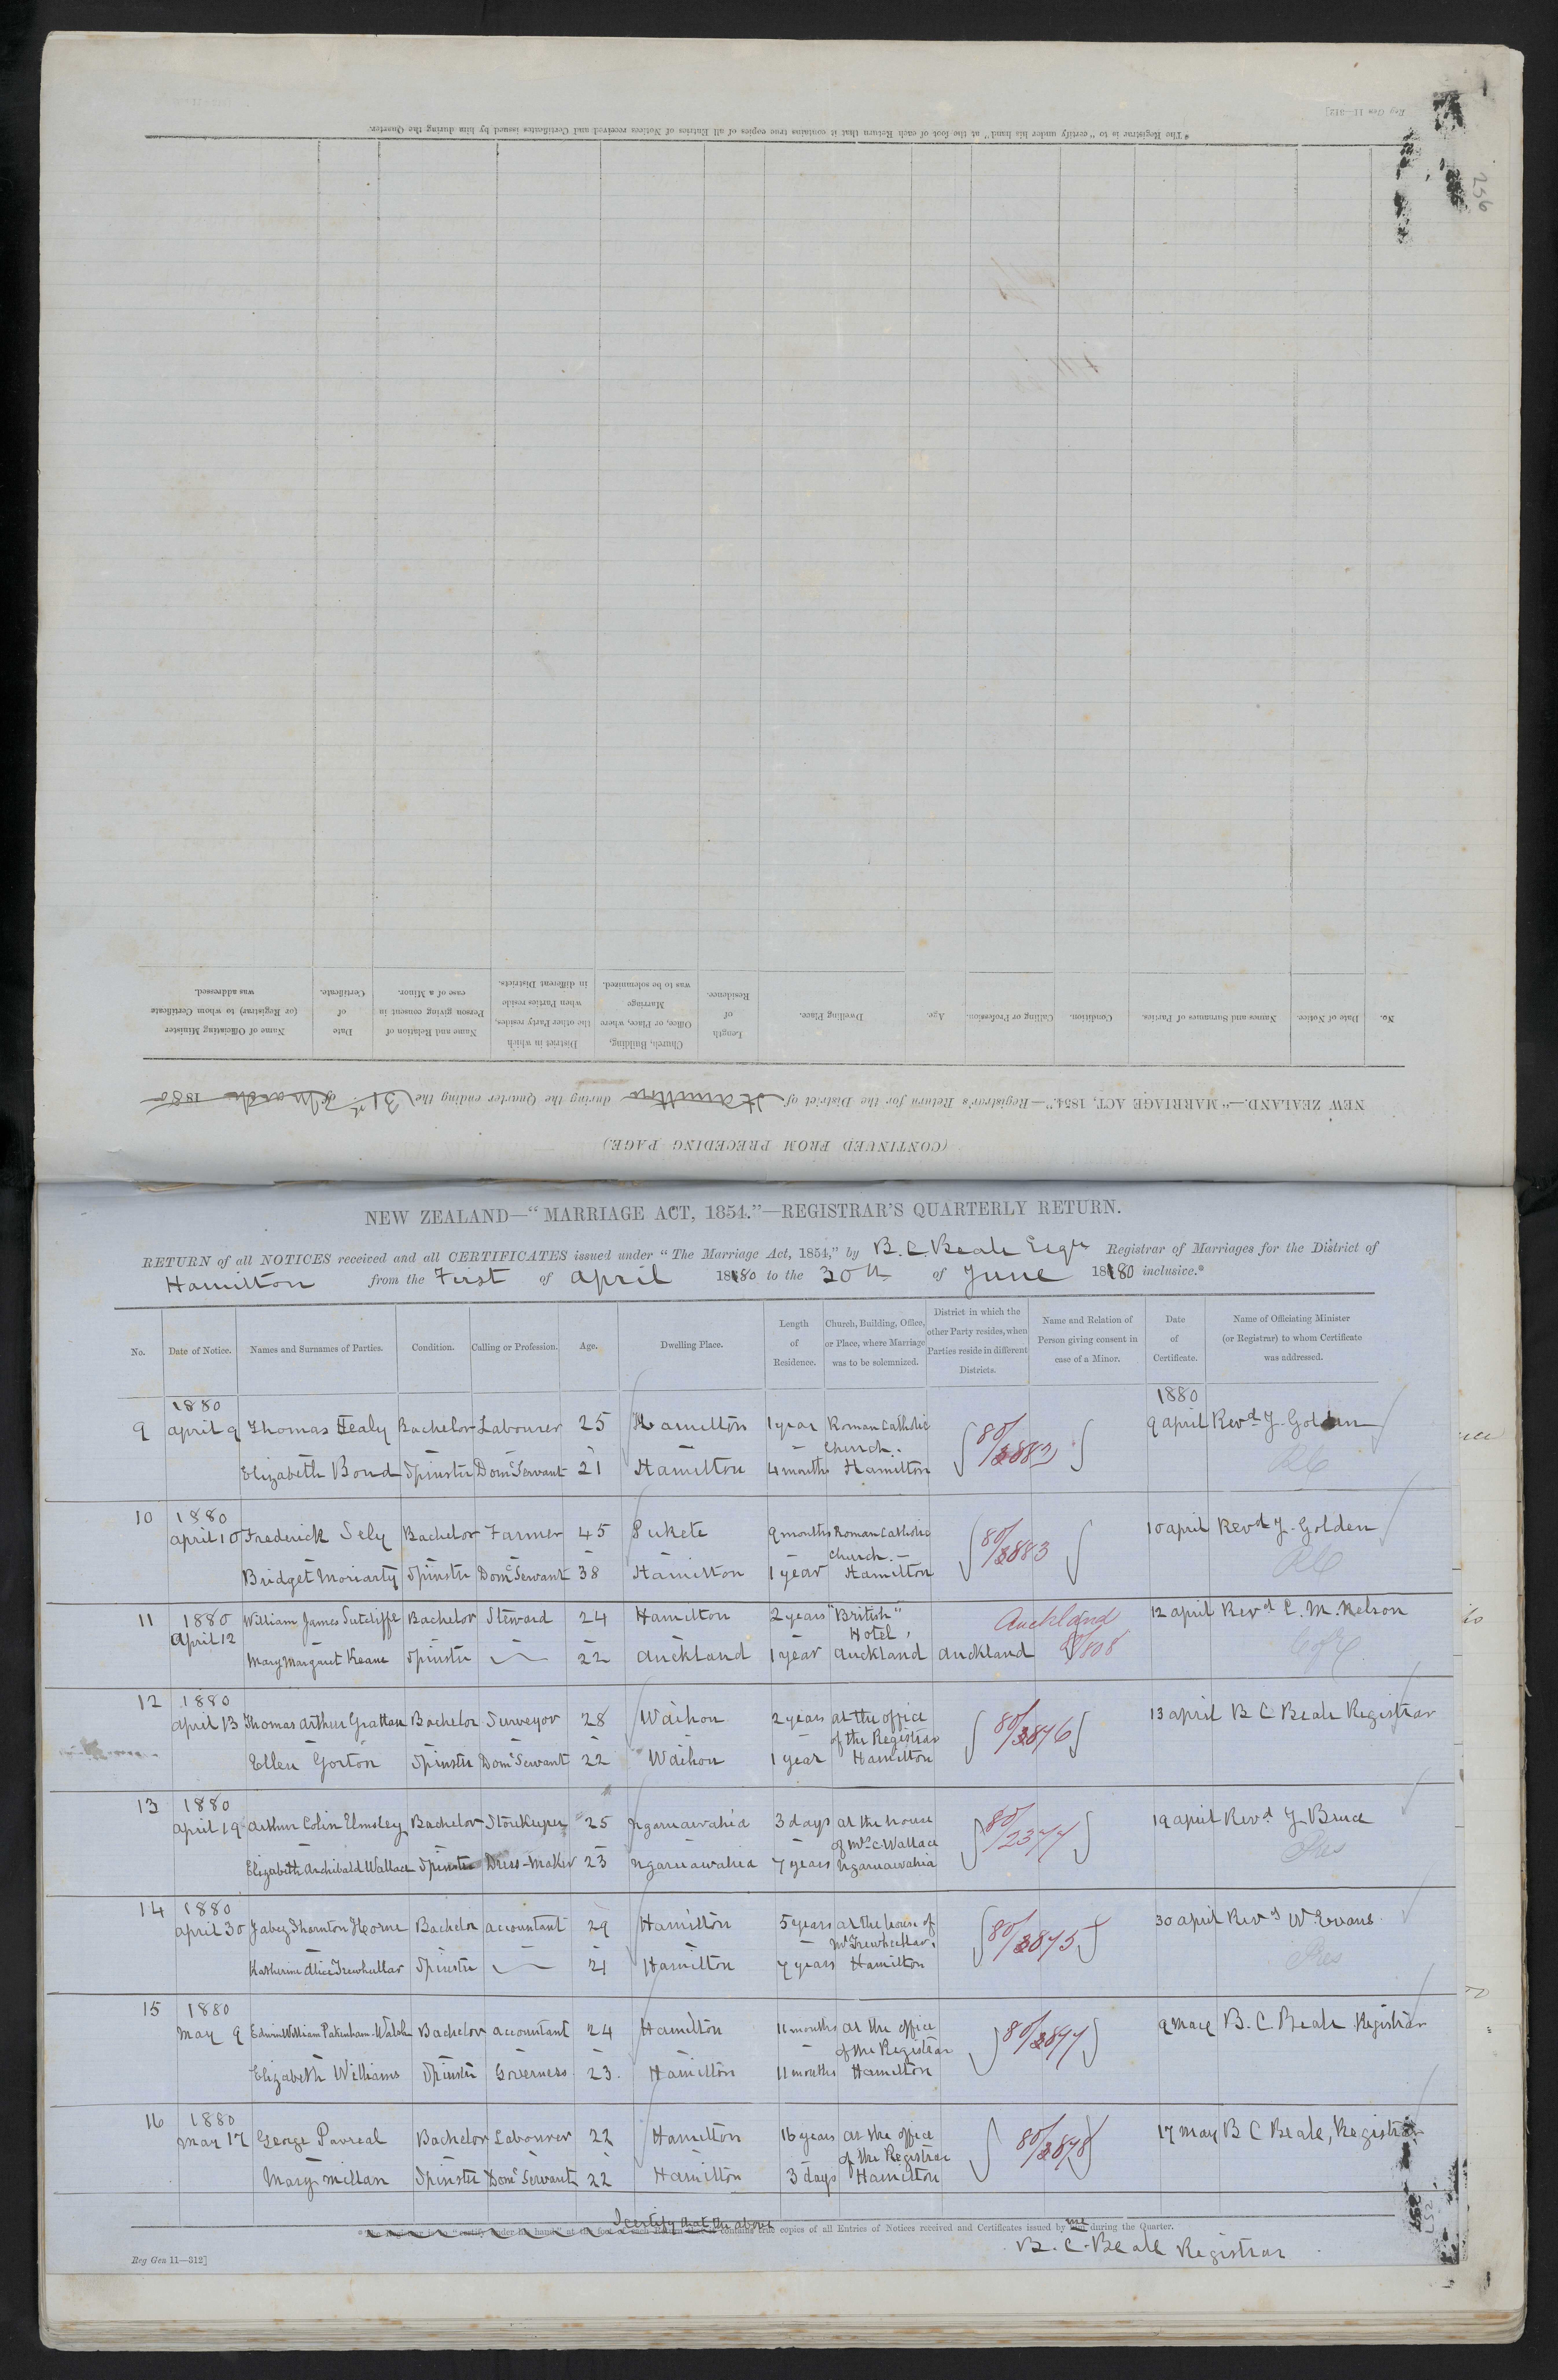 Reg Gen 11—312]
256
* The Registrar is to "certify under his hand" at the foot of each Return that it contains true copies of all Entries of Notices received and Certificates issued by him during the Quarter.
(CONTINUED FROM PRECEDING PAGE.)
NEW ZEALAND.—"MARRIAGE ACT, 1854."—Registrar's Return for the District of Hamilton during the Quarter ending the 31st of March 1880
No. Date of Notice. Names and Surnames of Parties. Condition. Calling or Profession. Age. Dwelling Place. Length of Residence. Church, Building, Office, or Place, where Marriage was to be solemnized. District in which the other Party resides, when Parties reside in different Districts. Name and Relation of Person giving consent in case of a Minor. Date of Certificate. Name of Officiating Minister (or Registrar) to whom Certificate was addressed.
NEW ZEALAND—"MARRIAGE ACT, 1854."—REGISTRAR'S QUARTERLY RETURN.
RETURN of all NOTICES received and all CERTIFICATES issued under "The Marriage Act, 1854," by B. C. Beale Esqre Registrar of Marriages for the District of
Hamilton from the First of April 1880 to the 30th of June 1880 inclusive.*
No. Date of Notice. Names and Surnames of Parties. Condition. Calling or Profession. Age. Dwelling Place. Length of Residence. Church, Building, Office, or Place, where Marriage was to be solemnized. District in which the other Party resides, when Parties reside in different Districts. Name and Relation of Person giving consent in case of a Minor. Date of Certificate. Name of Officiating Minister (or Registrar) to whom Certificate was addressed.
1880 1880
9 April 9 Thomas Healy Bachelor Labourer 25 Hamilton 1 year Roman Catholic 9 April Revd J. Golden
Church. 80/3882
Elizabeth Bond Spinster Domc Servant 21 Hamilton 4 months Hamilton RC
10 1880
April 10 Frederick Sely Bachelor Farmer 45 Pukete 9 months Roman Catholic 10 April Revd J. Golden
Church. 80/3883
Bridget Moriarty Spinster Domc Servant 38 Hamilton 1 year Hamilton RC
11 1880 William James Sutcliffe Bachelor Steward 24 Hamilton 2 years "British" Auckland 12 April Revd C. M. Nelson
April 12 Hotel,
Mary Margaret Keane Spinster 22 Auckland 1 year Auckland Auckland 80/808 CofE
12 1880
April 13 Thomas Arthur Grattan Bachelor Surveyor 28 Waihou 2 years at the office 13 April B C Beale Registrar
of the Registrar 80/3876
Ellen Gorton Spinster Domc Servant 22 Waihou 1 year Hamilton
13 1880
April 19 Arthur Colin Elmsley Bachelor Storekeeper 25 Ngaruawahia 3 days at the house 19 April Revd J Bruce
of Mrs C Wallace 80/2377
Elizabeth Archibald Wallace Spinster Dress-Maker 23 Ngaruawahia 7 years Ngaruawahia Pres
14 1880
April 30 Jabez Thornton Horne Bachelor Accountant 29 Hamilton 5 years at the house of 30 April Revd W Evans
Mr Trewheellar, 80/3875
Katherine Alice Trewheellar Spinster 21 Hamilton 7 years Hamilton Pres
15 1880
May 9 Edwin William Pakenham-Walsh Bachelor Accountant 24 Hamilton 11 months at the office 9 May B. C. Beale Registrar
of the Registrar 80/3877
Elizabeth Williams Spinster Governess 23. Hamilton 11 months Hamilton
16 1880
May 17 George Pavreal Bachelor Labourer 22 Hamilton 16 years at the office 17 May B C Beale, Registrar
of the Registrar 80/3878
Mary Millan Spinster Domc Servant 22 Hamilton 3 days Hamilton
I certify that the above
* The Registrar is to "certify under his hand" at the foot of each Return that it contains true copies of all Entries of Notices received and Certificates issued by me during the Quarter.
B. C. Beale Registrar
Reg Gen 11—312]